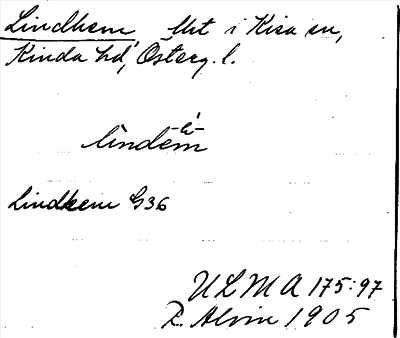 Lindhem, Uht i Kisa sn,
Kinda hd, Österg. l.
lindem
Lindhem G36
ULMA 175:97
R. Alvin 1905